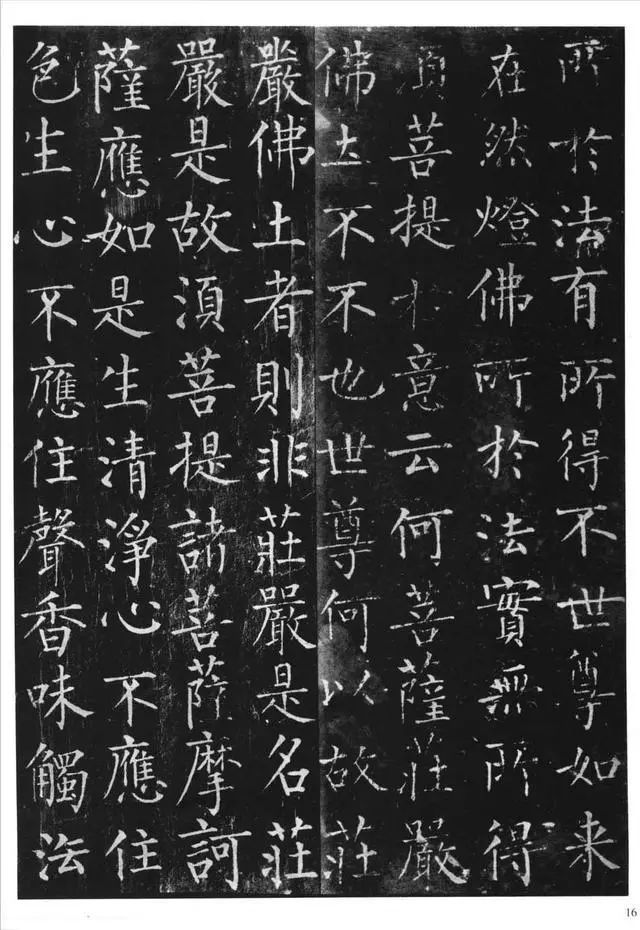 所於法有所得不世尊如来
在然燈佛所於法實無所得
須菩提於意云何菩薩莊嚴
佛土不不也世尊何以故莊
嚴佛土者則非莊嚴是名莊
嚴是故須菩提諸菩薩摩訶
薩應如是生清淨心不應住
色生心不應住聲香味觸法
16